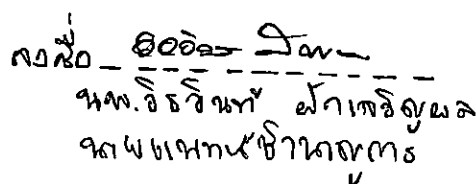 ลงชื่อ
นพ.วิธวินท์ ฝักเจริญผล
นายแพทย์ชำนาญการ